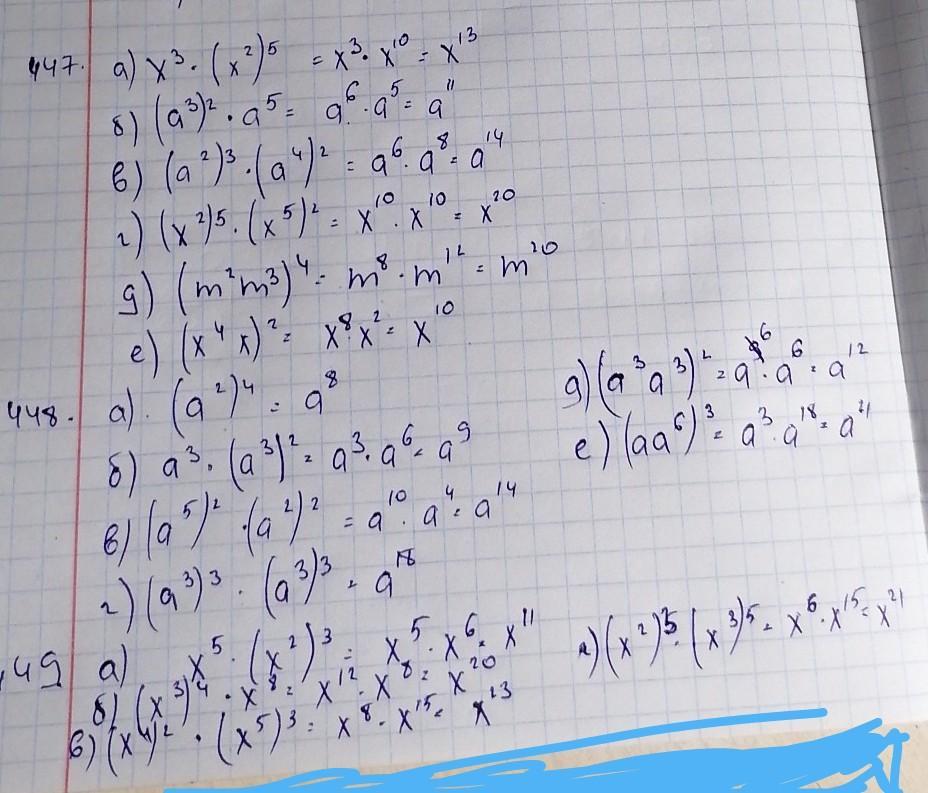 447. а) x³ · (x²)⁵ = x³ · x¹⁰ = x¹³
б) (a³)² · a⁵ = a⁶ · a⁵ = a¹¹
в) (a²)³ · (a⁴)² = a⁶ · a⁸ = a¹⁴
г) (x²)⁵ · (x⁵)² = x¹⁰ · x¹⁰ = x²⁰
д) (m²m³)⁴ = m⁸ · m¹² = m²⁰
е) (x⁴x)² = x⁸x² = x¹⁰
448. а) (a²)⁴ = a⁸
б) a³ · (a³)² = a³ · a⁶ = a⁹
в) (a⁵)² · (a²)² = a¹⁰ · a⁴ = a¹⁴
г) (a³)³ · (a³)³ = a¹⁸
д) (a³a³)² = a⁶ · a⁶ = a¹²
е) (aa⁶)³ = a³ · a¹⁸ = a²¹
49 а) x⁵ · (x²)³ = x⁵ · x⁶ = x¹¹
б) (x³)⁴ · x⁸ = x¹² · x⁸ = x²⁰
в) (x⁴)² · (x⁵)³ = x⁸ · x¹⁵ = x²³
г) (x²)³ · (x³)⁵ = x⁶ · x¹⁵ = x²¹